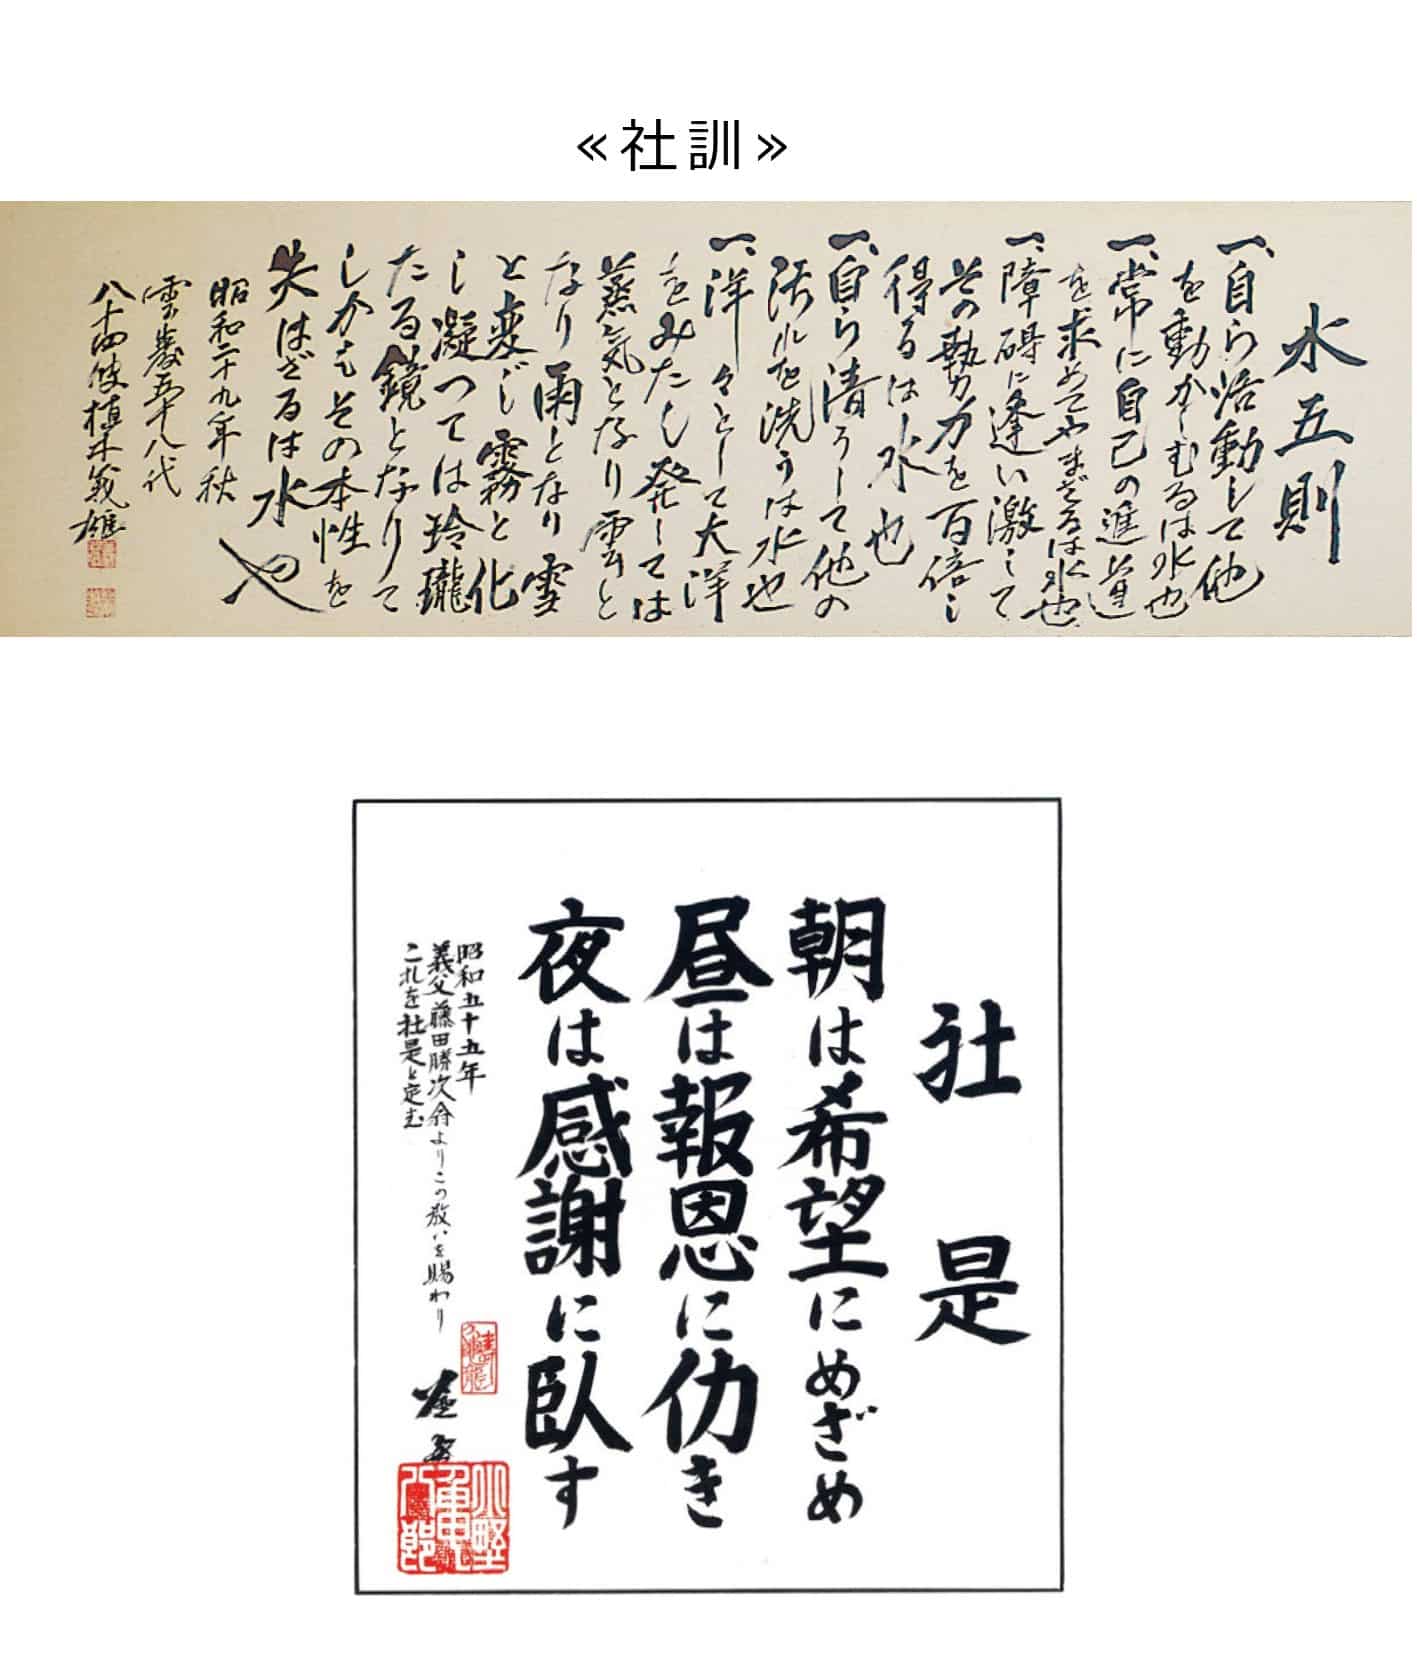 ≪社訓≫
水五則
一、自ら活動して他
を動かしむるは水也
一、常に自己の進路
を求めてやまざるは水也
一、障碍に逢い激して
其の勢力を百倍し
得るは水也
一、自ら清うして他の
汚れを洗うは水也
一、洋々として大洋
をみたし発しては
蒸気となり雲と
なり雨となり雪
と変じ霧と化
し凝っては玲瓏
たる鏡となりて
しかもその本性を
失はざるは水也
昭和二十九年秋
雲巌五十八代
八十四使植木義雄
社是
朝は希望にめざめ
昼は報恩に仂き
夜は感謝に臥す
昭和五十五年
義父藤田勝次翁よりこの教いを賜わり
これを社是と定む